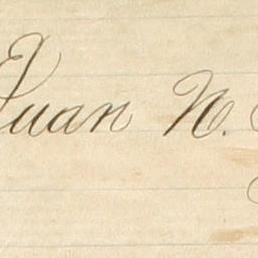 Juan N.